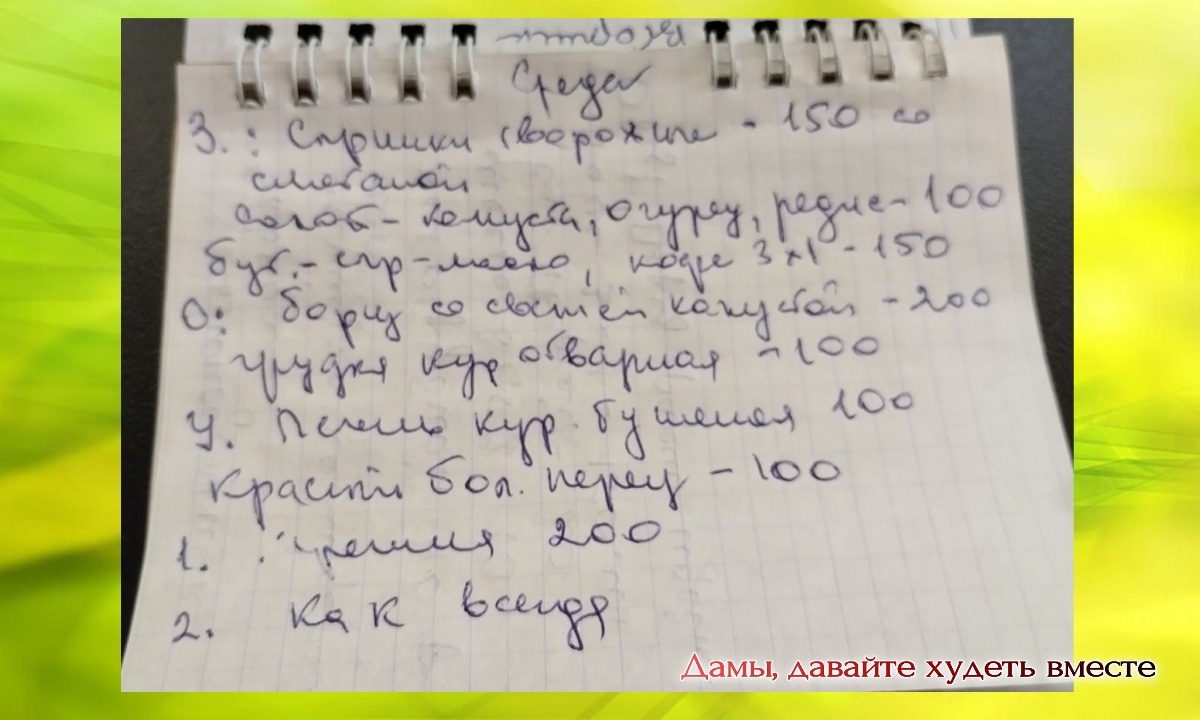 Вторник
Среда
З. : Сырники творожные - 150 со
сметаной
салат - капуста, огурец, редис - 100
бут. - сыр - масло, кофе 3х1 - 150
О: борщ со свежей капустой - 200
грудка кур отварная - 100
У. Печень кур. тушеная 100
Красный бол. перец - 100
1. : Черешня 200
2. Как всегда
Дамы, давайте худеть вместе